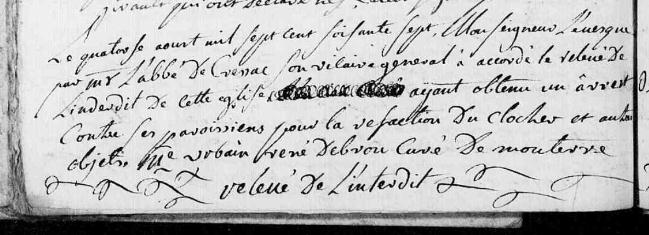 Le quatorse aoust mil sept cent soisante sept, Monseigneur L'evesque
par mr L'abbé De Cressac son vicaire general à accordé le relevé De
L'interdit De cette eglise ayant obtenu un arrest
Contre ses paroissiens pour la refaction Du clocher et autres
objets. Me urbain rené Debrou Curé De mouterre
relevé De L'interdit